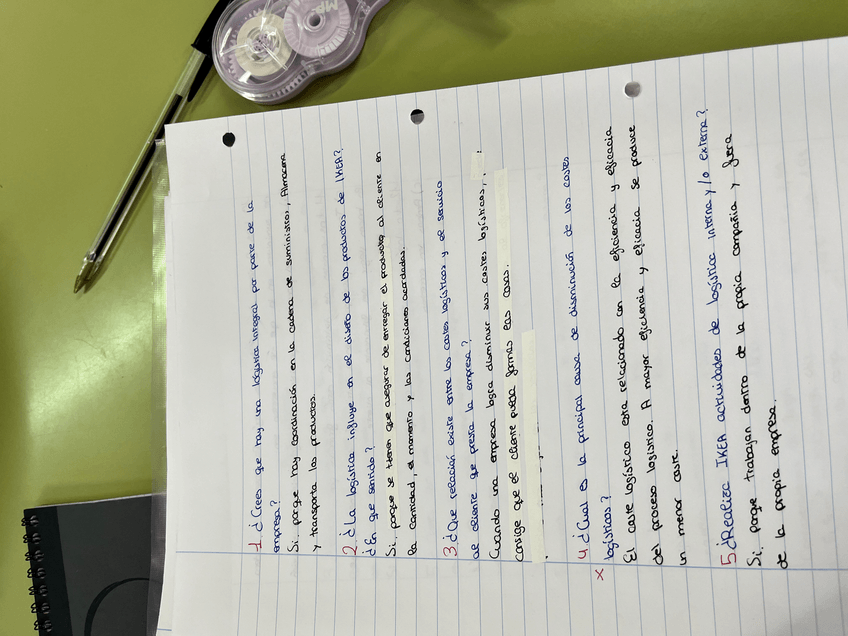 1. ¿Crees que hay una logística integral por parte de la
empresa?
Si, porque hay coordinación en la cadena de suministros, Almacena
y transporta los productos.
2 ¿La logística influye en el diseño de los productos de IKEA?
¿En que sentido?
Si, porque se tienen que asegurar de entregar el producto al cliente en
la cantidad, el momento y las condiciones acordadas.
3 ¿Que relación existe entre los costes logísticos y el servicio
al cliente que presta la empresa?
Cuando una empresa logra disminuir sus costes logísticos,
consige que el cliente pueda formes las cosas.
4 ¿Cual es la principal causa de disminución de los costes
x logísticos?
El coste logístico esta relacionado con la eficiencia y eficacia
del proceso logístico. A mayor eficiencia y eficacia se produce
un menor coste.
5 ¿Realiza IKEA actividades de logística interna y/o externa?
Si, porque trabajan dentro de la propia compañia y fuera
de la propia empresa.